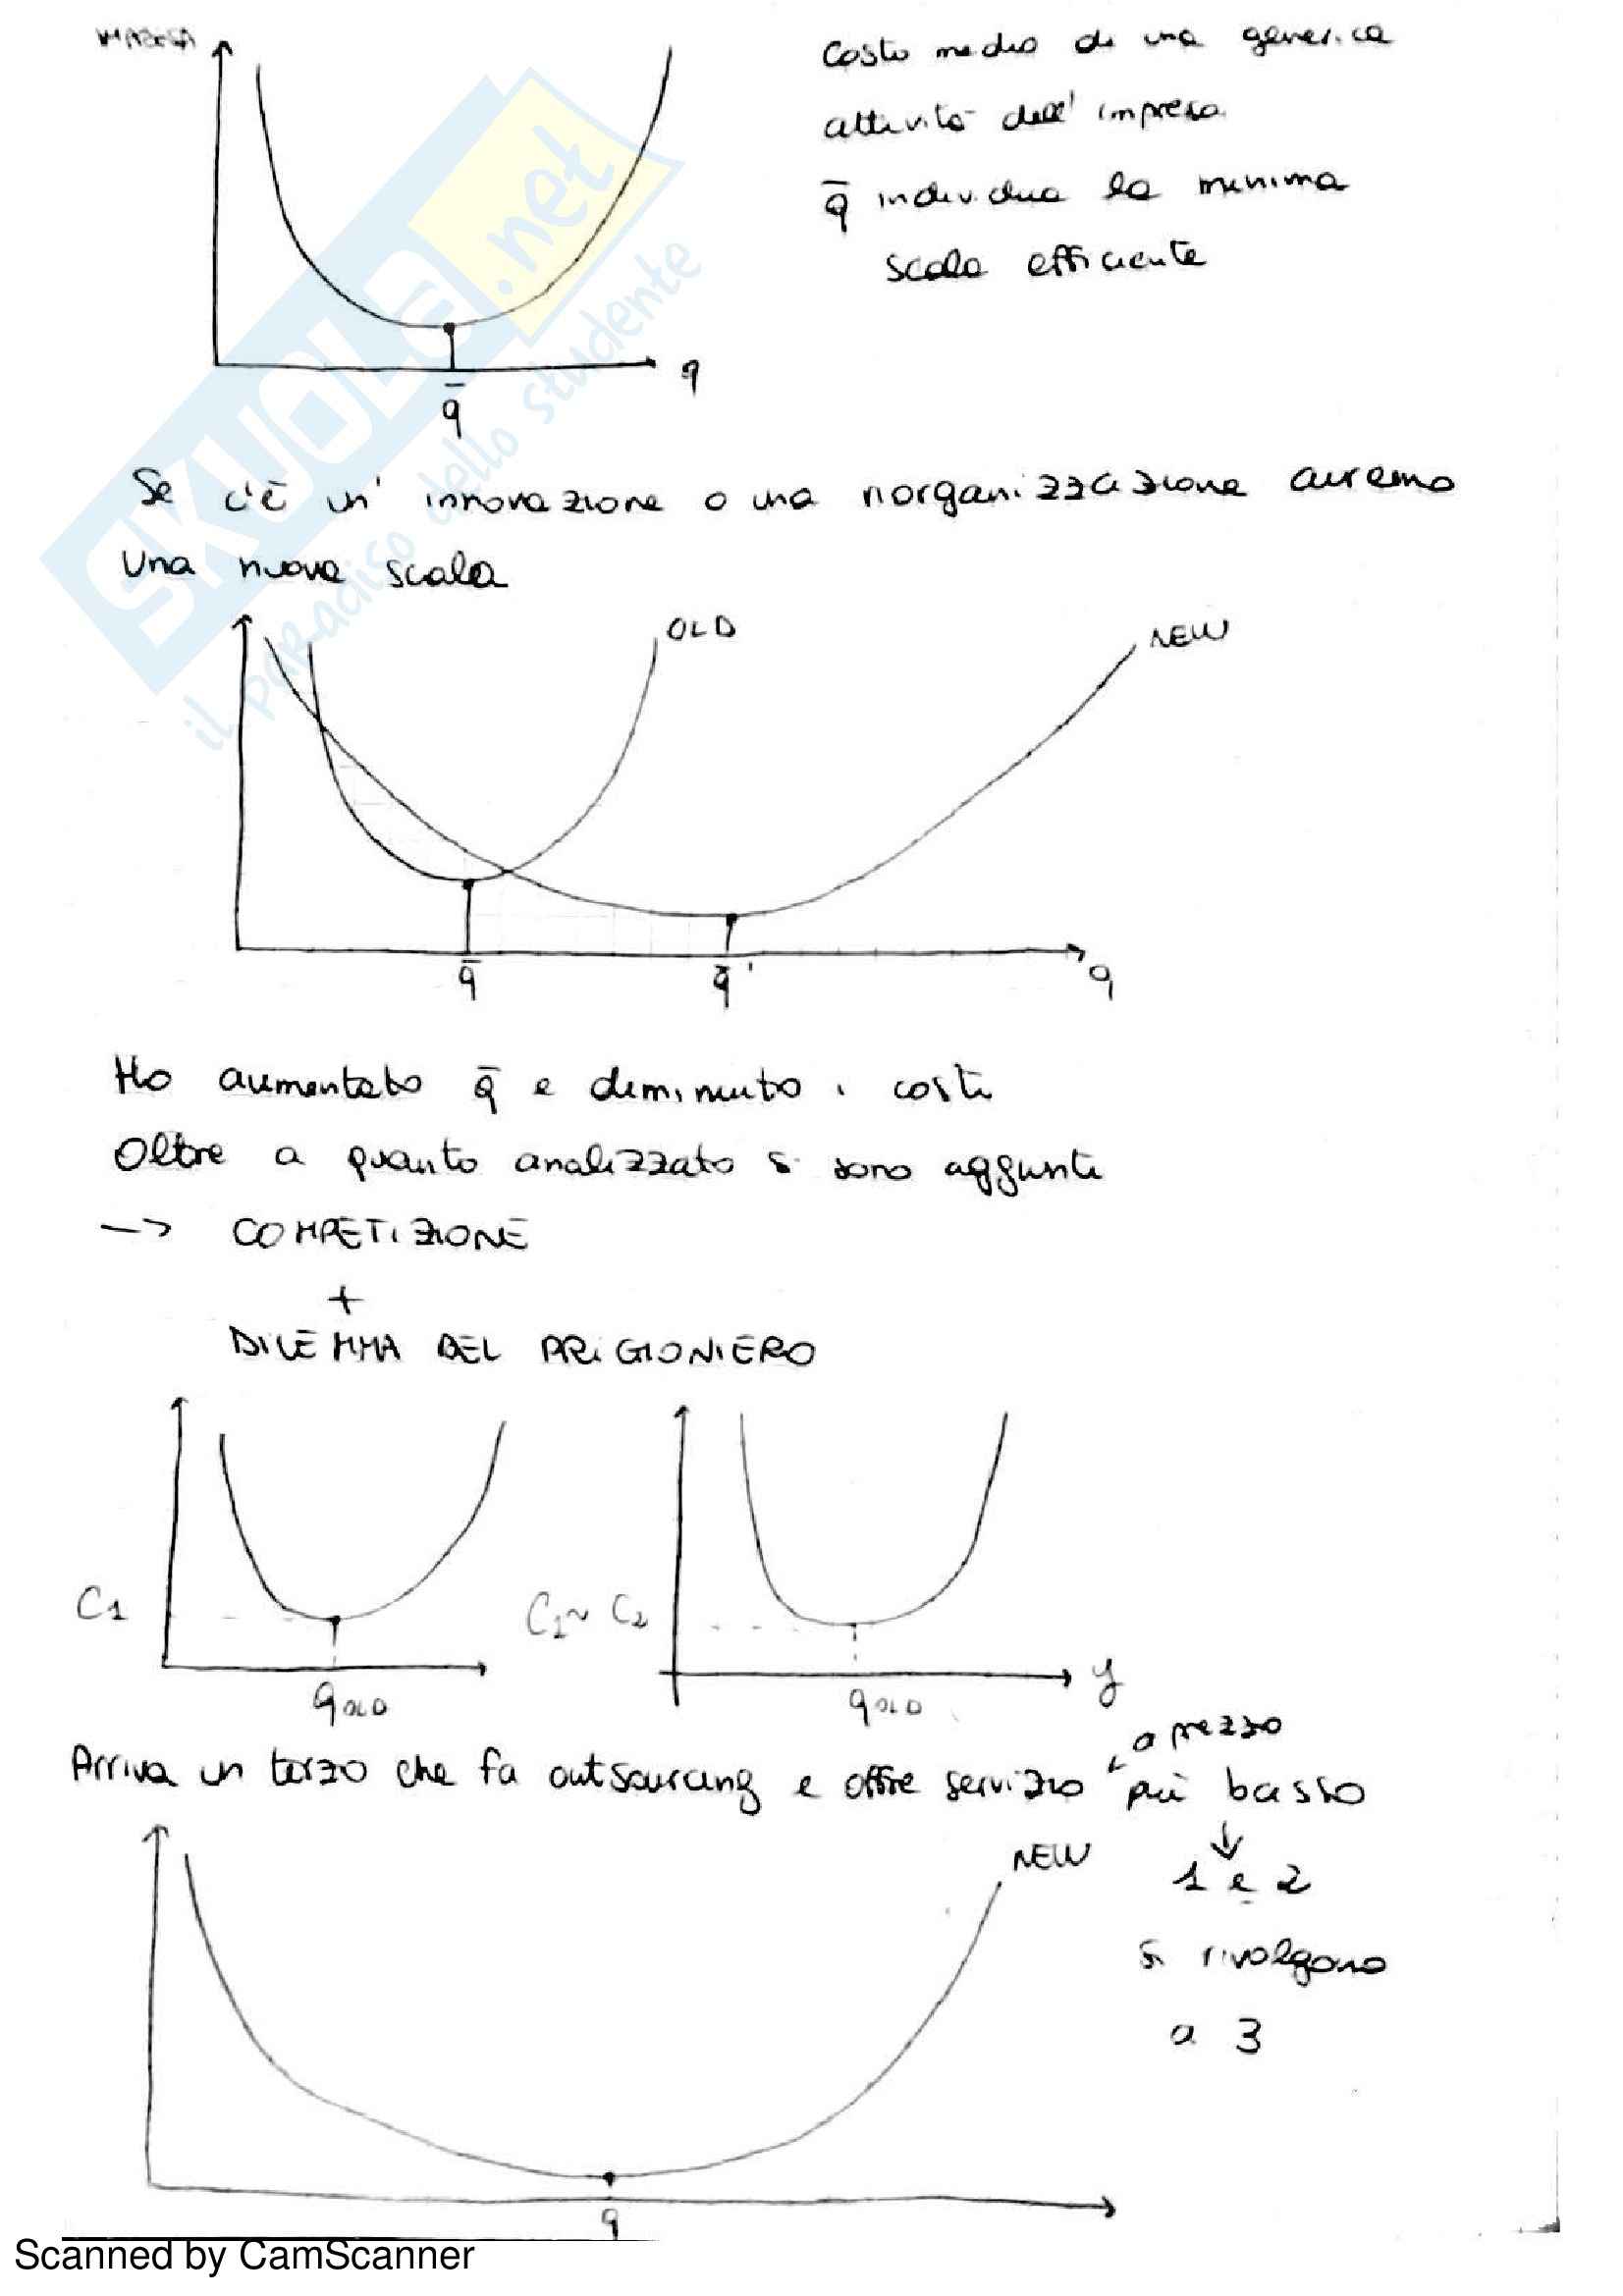 IMPRESA
Costo medio di una generica
attività dell'impresa
q̄ individua la minima
scala efficiente
q
q̄
SKUOLA.net
il paradiso dello studente
Se c'è un' innovazione o una riorganizzazione avremo
una nuova scala
OLD
NEW
q̄
q̄'
q
Ho aumentato q̄ e diminuito i costi
Oltre a quanto analizzato si sono aggiunti
-> COMPETIZIONE
+
DILEMMA DEL PRIGIONIERO
C1
C1~ C2
qOLD
qOLD
y
Arriva un terzo che fa outsourcing e offre servizio a prezzo più basso
↓
NEW
1 e 2
si rivolgono
a 3
q
Scanned by CamScanner